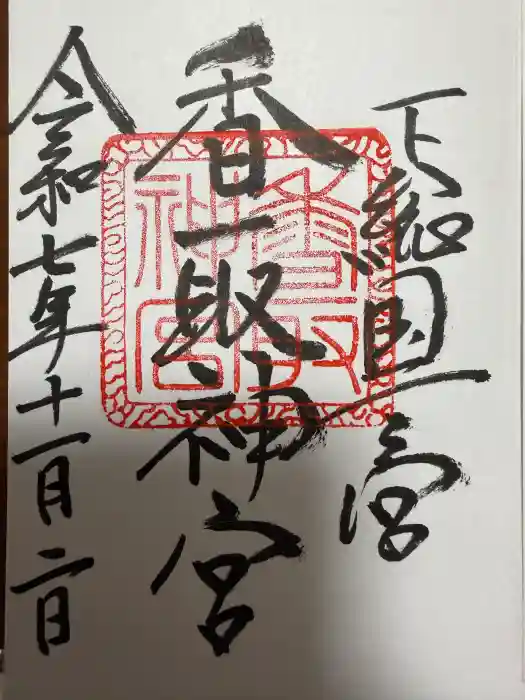 下総国一宮
香取神宮
香取
神宮
令和七年十一月二日